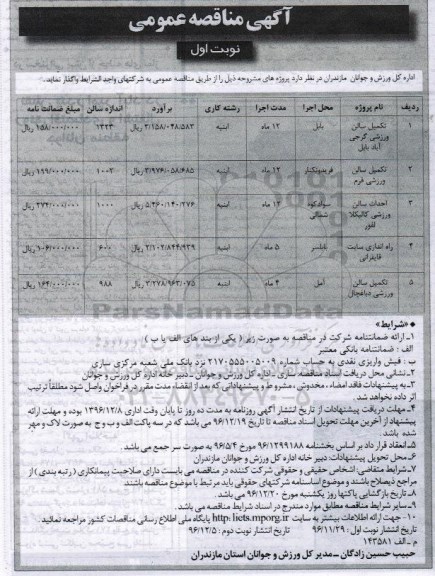 آگهی مناقصه عمومی
نوبت اول
اداره کل ورزش و جوانان مازندران در نظر دارد پروژه های مشروحه ذیل را از طریق مناقصه عمومی به شرکتهای واجد الشرایط واگذار نماید.
ردیف نام پروژه محل اجرا مدت اجرا رشته کاری برآورد اندازه سالن مبلغ ضمانت نامه
۱ تکمیل سالن ورزشی گرجی آباد بابل بابل ۱۲ ماه ابنیه ۳/۱۵۸/۰۴۸/۵۸۳ ریال ۲۴۲۴ ۱۵۸/۰۰۰/۰۰۰ ریال
۲ تکمیل سالن ورزشی فرم فریدونکنار ۱۲ ماه ابنیه ۳/۹۷۶/۰۵۸/۴۸۵ ریال ۱۰۰۲ ۱۹۹/۰۰۰/۰۰۰ ریال
۳ احداث سالن ورزشی کالیکلا لفور سوادکوه شمالی ۱۲ ماه ابنیه ۵/۴۶۰/۱۴۰/۲۷۶ ریال ۱۰۰۰ ۲۷۴/۰۰۰/۰۰۰ ریال
۴ راه اندازی سایت قایقرانی بابلسر ۵ ماه ابنیه ۲/۱۰۲/۸۴۴/۹۳۹ ریال ۶۰۰ ۱۰۶/۰۰۰/۰۰۰ ریال
۵ تکمیل سالن ورزشی دباغچال آمل ۴ ماه ابنیه ۳/۲۷۸/۹۶۳/۰۷۵ ریال ۹۸۸ ۱۶۴/۰۰۰/۰۰۰ ریال
ParsNamadData
«شرایط»
۱- ارائه ضمانتنامه شرکت در مناقصه به صورت زیر ( یکی از بند های الف یا ب )
الف : ضمانتنامه بانکی معتبر
ب : فیش واریزی نقدی به حساب شماره ۲۱۷۰۵۵۵۰۰۵۰۰۹ نزد بانک ملی شعبه مرکزی ساری
۲- نشانی محل دریافت اسناد مناقصه: ساری - اداره کل ورزش و جوانان - دبیر خانه اداره کل ورزش و جوانان
۳- به پیشنهادات فاقد امضاء، مخدوش ، مشروط و پیشنهاداتی که بعد از انقضاء مدت مقرر در فراخوان واصل شود مطلقاً ترتیب
اثر داده نخواهد شد.
۴- مهلت دریافت پیشنهادات از تاریخ انتشار آگهی روزنامه به مدت ده روز تا پایان وقت اداری ۱۳۹۶/۱۲/۸ بوده و مهلت ارائه
پیشنهاد از آخرین مهلت تحویل اسناد مناقصه تا تاریخ ۹۶/۱۲/۱۹ می باشد که در سه پاکت الف و ب و ج به صورت لاک و مهر
شده باشد.
۵- انعقاد قرار داد بر اساس بخشنامه ۹۶/۱۲۹۹۱۸۸ مورخ ۹۶/۵/۴ به صورت سر جمع می باشد
۶- محل تحویل پیشنهادات: دبیر خانه اداره کل ورزش و جوانان مازندران
۷- شرایط متقاضی: اشخاص حقیقی و حقوقی شرکت کننده در مناقصه می بایست دارای صلاحیت پیمانکاری ( رتبه بندی ) از
مراجع ذیصلاح باشند و موضوع اساسنامه شرکتهای حقوقی باید مرتبط با موضوع مناقصه باشند
۸- تاریخ بازگشایی پاکتها روز یکشنبه مورخ ۹۶/۱۲/۲۰ می باشد.
۹- سایر شرایط مناقصه مطابق موارد مندرج در اسناد شرایط مناقصه می باشد.
۱۰- جهت ارائه اطلاعات بیشتر به سایت http: iets.mporg.ir پایگاه ملی اطلاع رسانی مناقصات کشور مراجعه نمائید.
تاریخ انتشار نوبت اول : ۹۶/۱۱/۲۹ تاریخ انتشار نوبت دوم : ۹۶/۱۲/۵
م - الف ۱۴۳۵۸۱
حبیب حسین زادگان - مدیر کل ورزش و جوانان استان مازندران